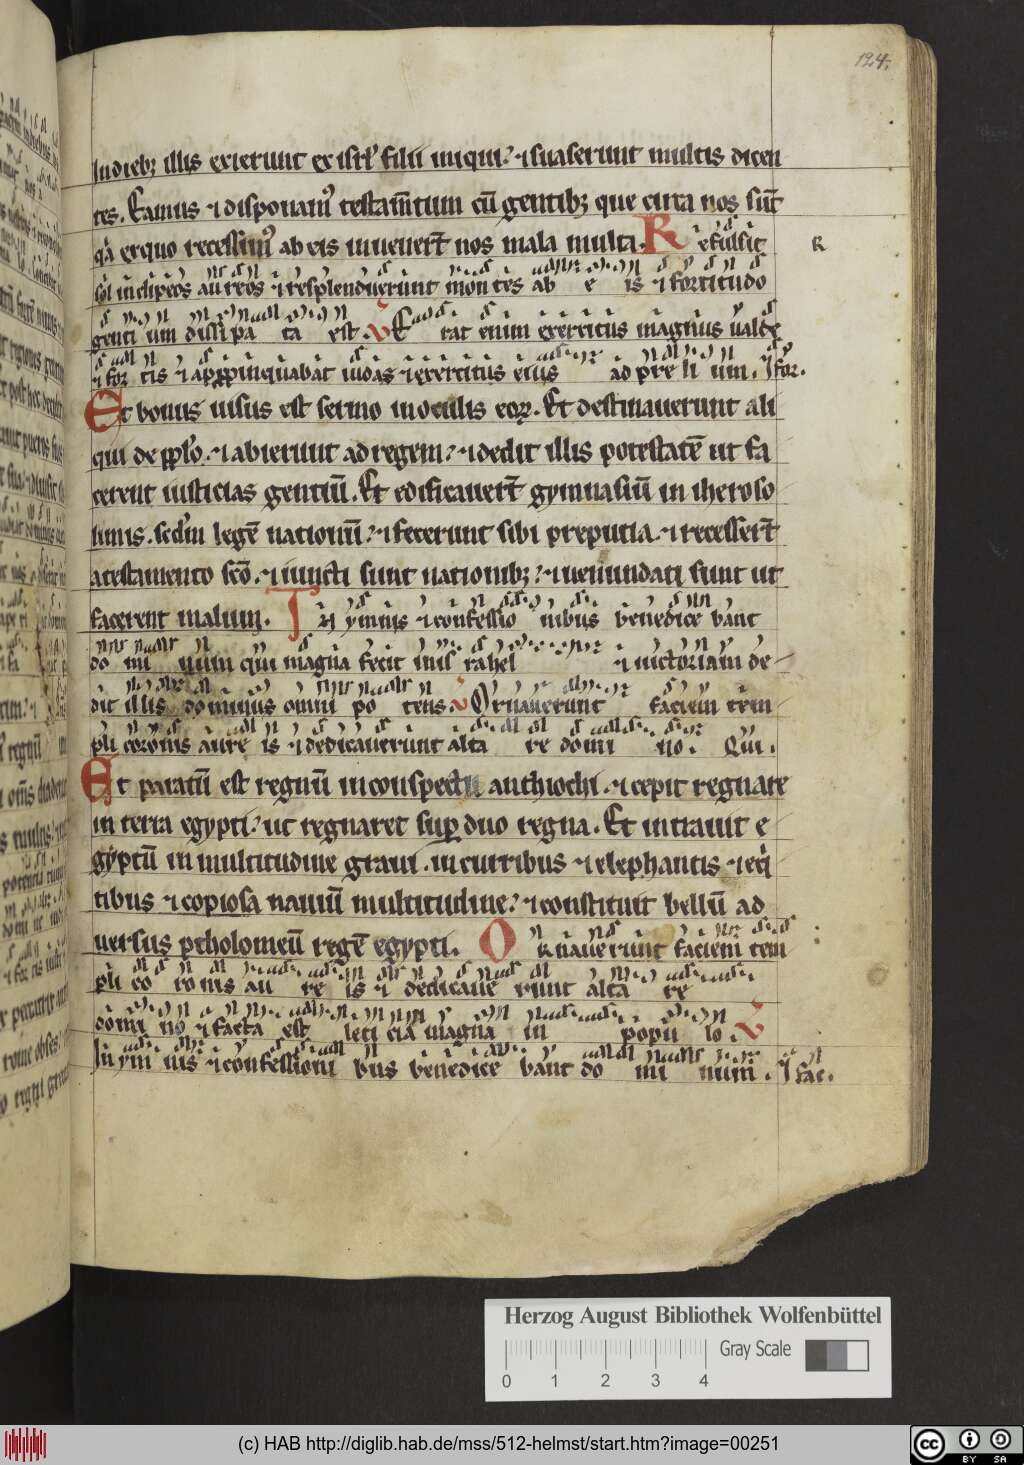 124.
In dieb; illis exierunt ex isrl' filii iniqui? ⁊ suaserunt multis dicen
tes. Eamus ⁊ disponam' testam̄tum cū gentib; que circa nos sūt
qꝛ exquo recessim' ab eis inuener̄t nos mala multa. R efulsit
R
sol in clipeos aureos ⁊ resplenduerunt montes ab e is ⁊ fortitudo
genti um dissi pa ta est. V Erat enim exercitus magnus ualde
⁊ for tis ⁊ appropinquabat iudas ⁊ exercitus eius ad pre li um. ⁊ for.
Et bonus uisus est sermo in oculis eoꝝ. Et destinauerunt ali
qui de pplo. ⁊ abierunt ad regem? ⁊ dedit illis potestatē ut fa
cerent iusticias gentiū. Et edificauer̄t gymnasiū in iheroso
limis. scd'm legē nationū? ⁊ fecerunt sibi preputia. ⁊ recesser̄t
a testamento scō. ⁊ iuncti sunt nationib;? ⁊ uenundati sunt ut
facerent malum. In ymnis ⁊ confessio nibus benedice bant
do mi num qui magna fecit in israhel ⁊ uictoriam de
dit illis dominus omni po tens. V Ornauerunt faciem tem
pli coronis aure is ⁊ dedicauerunt alta re domi no. Qui.
Et paratū est regnū in conspectu anthiochi. ⁊ cepit regnare
in terra egypti? ut regnaret sup duo regna. Et intrauit e
gyptū in multitudine graui. in curribus ⁊ elephantis ⁊ eq̇
tibus ⁊ copiosa nauiū multitudine? ⁊ constituit bellū ad
uersus ptholomeū regē egypti. O rnauerunt faciem tem
pli co ro nis au re is ⁊ dedicaue runt alta re
domi no ⁊ facta est leti cia magna in popu lo. V
In ym nis ⁊ confessioni bus benedice bant do mi num. ⁊ fac.
Herzog August Bibliothek Wolfenbüttel
Gray Scale
0 1 2 3 4
(c) HAB http://diglib.hab.de/mss/512-helmst/start.htm?image=00251
cc BY SA